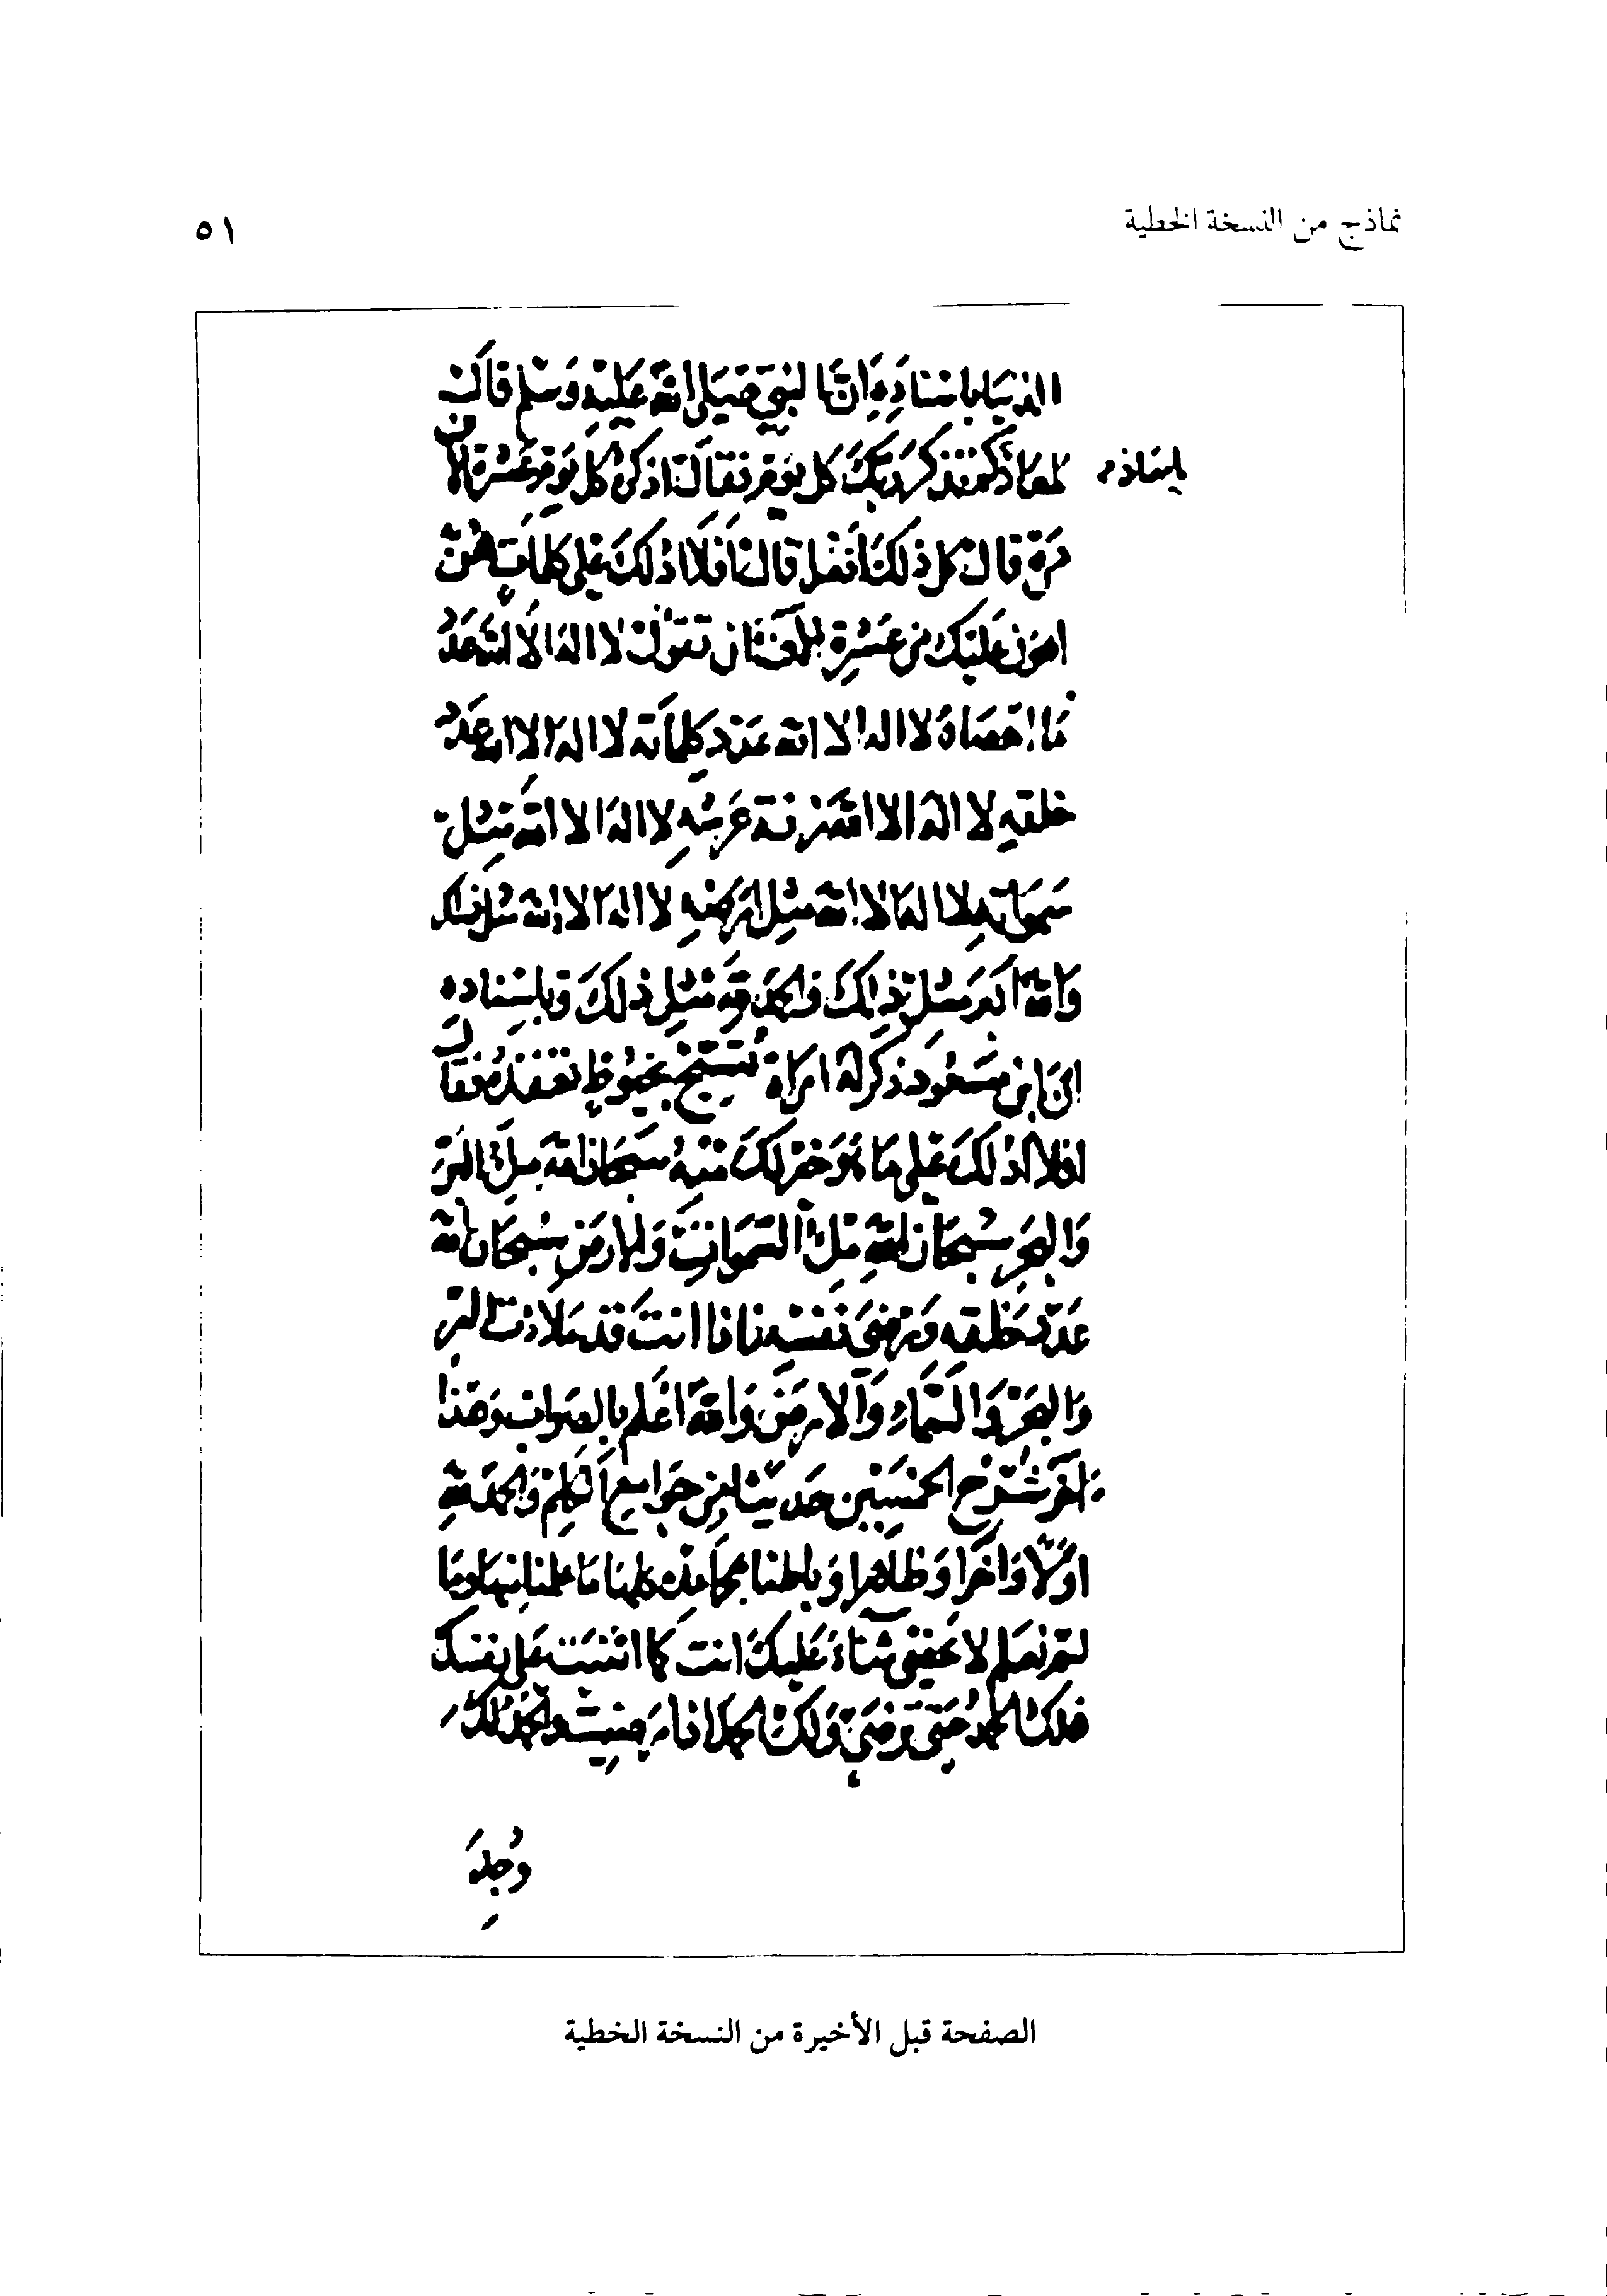 نماذج من النسخة الخطية
٥١
الدنيا باسناده ان النبي صلى الله عليه وسلم قال
لمعاذ كم تذكر ربك كل يوم فقال اذكره كل يوم عشرة الاف
يا معاذ
مرة قال كل ذلك افعل قال افلا ادلك على كلمات هن
اهون عليك من عشرة الاف ان تقول لا اله الا الله عدد
ما احصاه لا اله الا الله عدد كلماته لا اله الا الله عدد
خلقه لا اله الا الله زنة عرشه لا اله الا الله مثل
سمواته لا اله الا الله مثل ارضه لا اله الا الله مثل ذلك
والله اكبر مثل ذلك والحمد لله مثل ذلك وباسناده
ان ابن مسعود ذكر له امراة تسبح بخيوط تعقده فقال
افلا ادلك على ما هو خير لك منه سبحان الله ملء البر
والبحر سبحان الله ملء السموات والارض سبحان الله
عدد خلقه ورضى نفسه فاذا انت قد ملات البر
والبحر والسماء والارض والله اعلم بالصواب وهذا
اخر شرح الخمسين حديثا من جوامع الكلم والحمد لله
اولا واخرا وظاهرا وباطنا بمحامده كلها ما علمنا منها وما
لم نعلم لا نحصي ثناء عليك انت كما اثنيت على نفسك
فلك الحمد حتى ترضى ولك الحمد اذا رضيت ولك الحمد
وجد
الصفحة قبل الأخيرة من النسخة الخطية